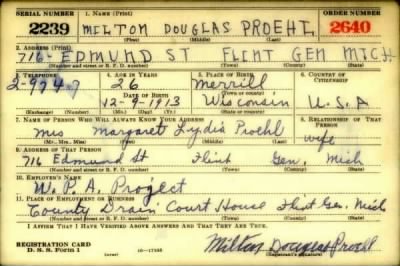 SERIAL NUMBER 1. NAME (Print) ORDER NUMBER
2239 MILTON DOUGLAS PROEHL 2640
(First) (Middle) (Last)
2. ADDRESS (Print)
716 EDMUND ST FLINT GEN MICH
(Number and street or R. F. D. number) (Town) (County) (State)
3. TELEPHONE 4. AGE IN YEARS 5. PLACE OF BIRTH 6. COUNTRY OF CITIZENSHIP
2-9747 26 Merrill
DATE OF BIRTH (Town or county)
12-9-1913 Wisconsin U.S.A
(Exchange) (Number) (Mo.) (Day) (Yr.) (State or country)
7. NAME OF PERSON WHO WILL ALWAYS KNOW YOUR ADDRESS 8. RELATIONSHIP OF THAT PERSON
Mrs Margaret Lydia Proehl wife
(Mr., Mrs., Miss) (First) (Middle) (Last)
9. ADDRESS OF THAT PERSON
716 Edmund St Flint Gen, Mich
(Number and street or R. F. D. number) (Town) (County) (State)
10. EMPLOYER'S NAME
W. P. A. Project
11. PLACE OF EMPLOYMENT OR BUSINESS
County Drain Court House Flint Gen. Mich
(Number and street or R. F. D. number) (Town) (County) (State)
I AFFIRM THAT I HAVE VERIFIED ABOVE ANSWERS AND THAT THEY ARE TRUE.
REGISTRATION CARD
D. S. S. Form 1 Milton Douglas Proehl
(Registrant's signature)